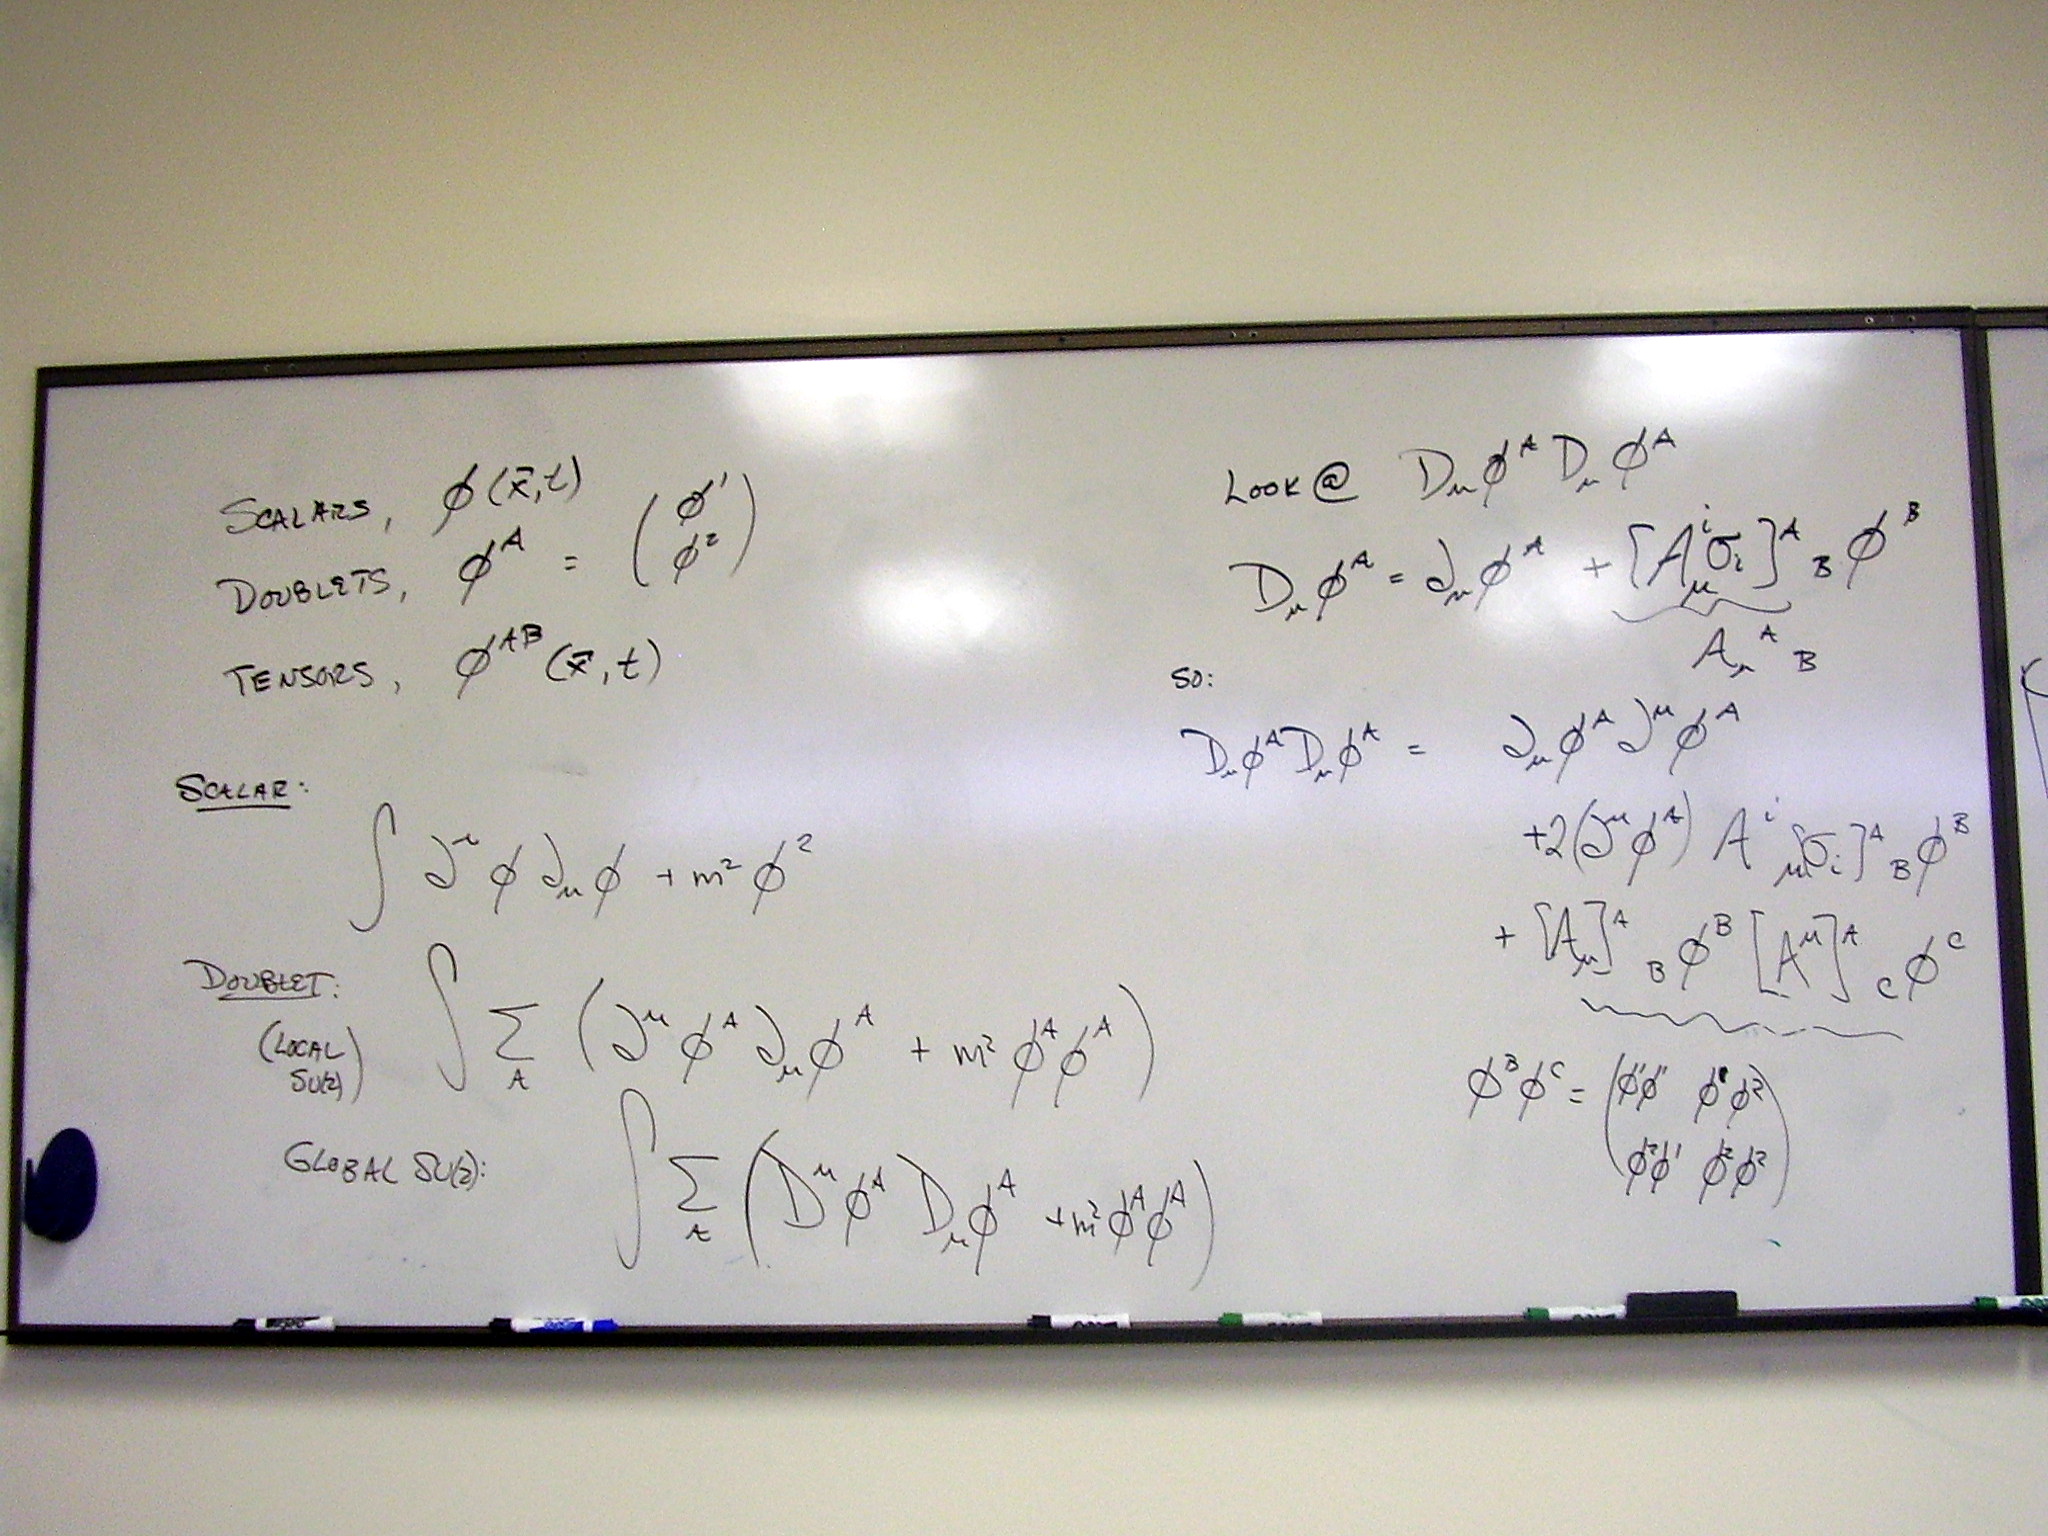 SCALARS, ϕ(x⃗,t)
DOUBLETS, ϕ^A = (ϕ^1 ϕ^2)
TENSORS, ϕ^{AB}(x⃗,t)
SCALAR:
∫ ∂^μ ϕ ∂_μ ϕ + m² ϕ²
DOUBLET:
(LOCAL SU(2))
∫ Σ_A (∂^μ ϕ^A ∂_μ ϕ^A + m² ϕ^A ϕ^A)
GLOBAL SU(2):
∫ Σ_A (D^μ ϕ^A D_μ ϕ^A + m² ϕ^A ϕ^A)
LOOK @ D_μ ϕ^A D_μ ϕ^A
D_μ ϕ^A = ∂_μ ϕ^A + [A_μ^i σ_i]^A_B ϕ^B
A_μ^A_B
SO:
D_μ ϕ^A D_μ ϕ^A = ∂_μ ϕ^A ∂^μ ϕ^A
+2(∂^μ ϕ^A) A^i_μ [σ_i]^A_B ϕ^B
+ [A_μ]^A_B ϕ^B [A^μ]^A_C ϕ^C
ϕ^B ϕ^C = (ϕ^1ϕ^1 ϕ^1ϕ^2
ϕ^2ϕ^1 ϕ^2ϕ^2)